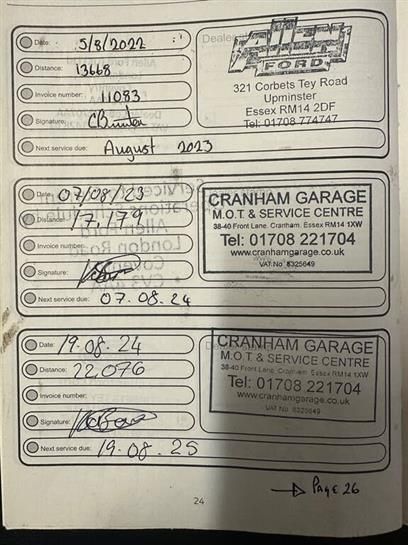 Date: 5/8/2022
Distance: 13668
Invoice number: 11083
Signature:
Next service due: August 2023
FORD
321 Corbets Tey Road
Upminster
Essex RM14 2DF
Tel: 01708 774747
Date: 07/08/23
Distance: 17,179
Invoice number:
Signature:
Next service due: 07.08.24
CRANHAM GARAGE
M.O.T. & SERVICE CENTRE
38-40 Front Lane, Cranham, Essex RM14 1XW
Tel: 01708 221704
www.cranhamgarage.co.uk
VAT No 8325649
Date: 19.08.24
Distance: 22076
Invoice number:
Signature:
Next service due: 19.08.25
CRANHAM GARAGE
M.O.T. & SERVICE CENTRE
38-40 Front Lane, Cranham, Essex RM14 1XW
Tel: 01708 221704
www.cranhamgarage.co.uk
VAT No 8325649
24
Page 26